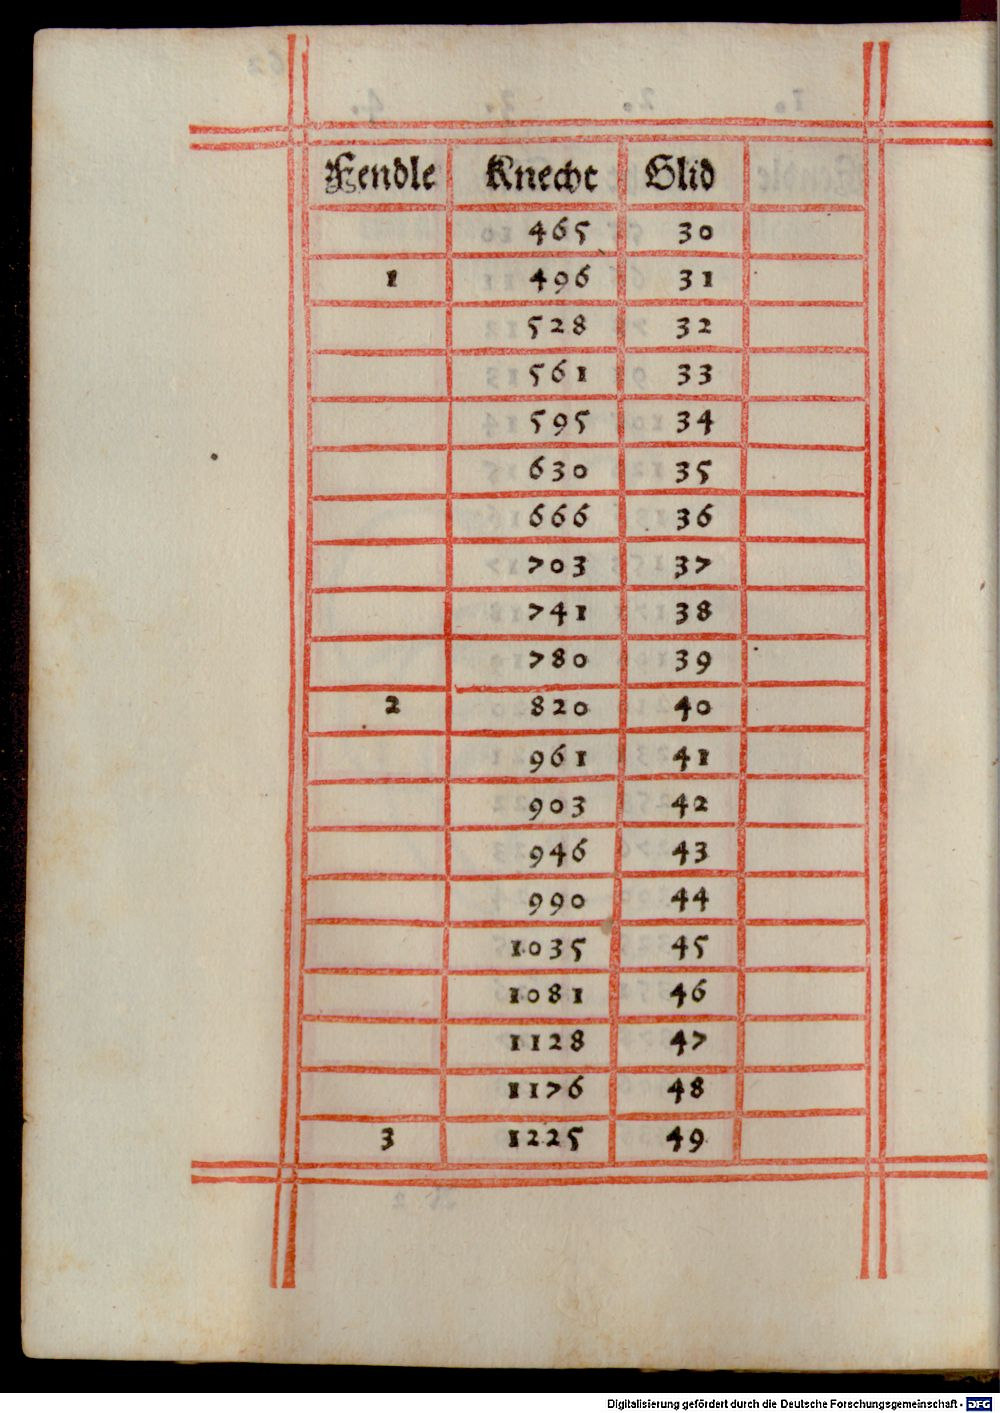 Fendle Knecht Glid
465 30
1 496 31
528 32
561 33
595 34
630 35
666 36
703 37
741 38
780 39
2 820 40
961 41
903 42
946 43
990 44
1035 45
1081 46
1128 47
1176 48
3 1225 49
Digitalisierung gefördert durch die Deutsche Forschungsgemeinschaft - DFG